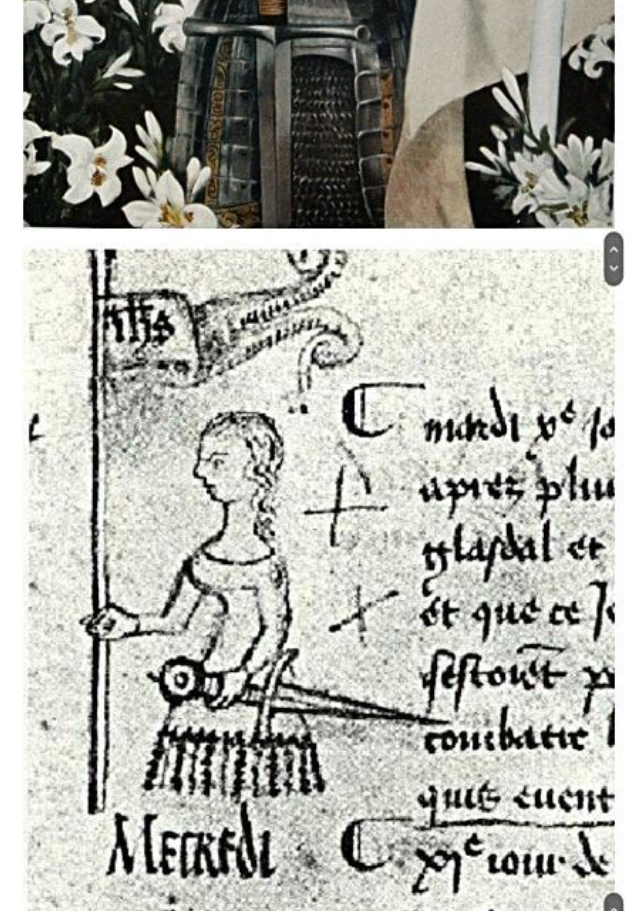 Jhs
mardi xe jo
apres plui
glasdal et
et que ce Je
sestoiēt p
combatre l
quiē euent
Mecredi
xje iour de